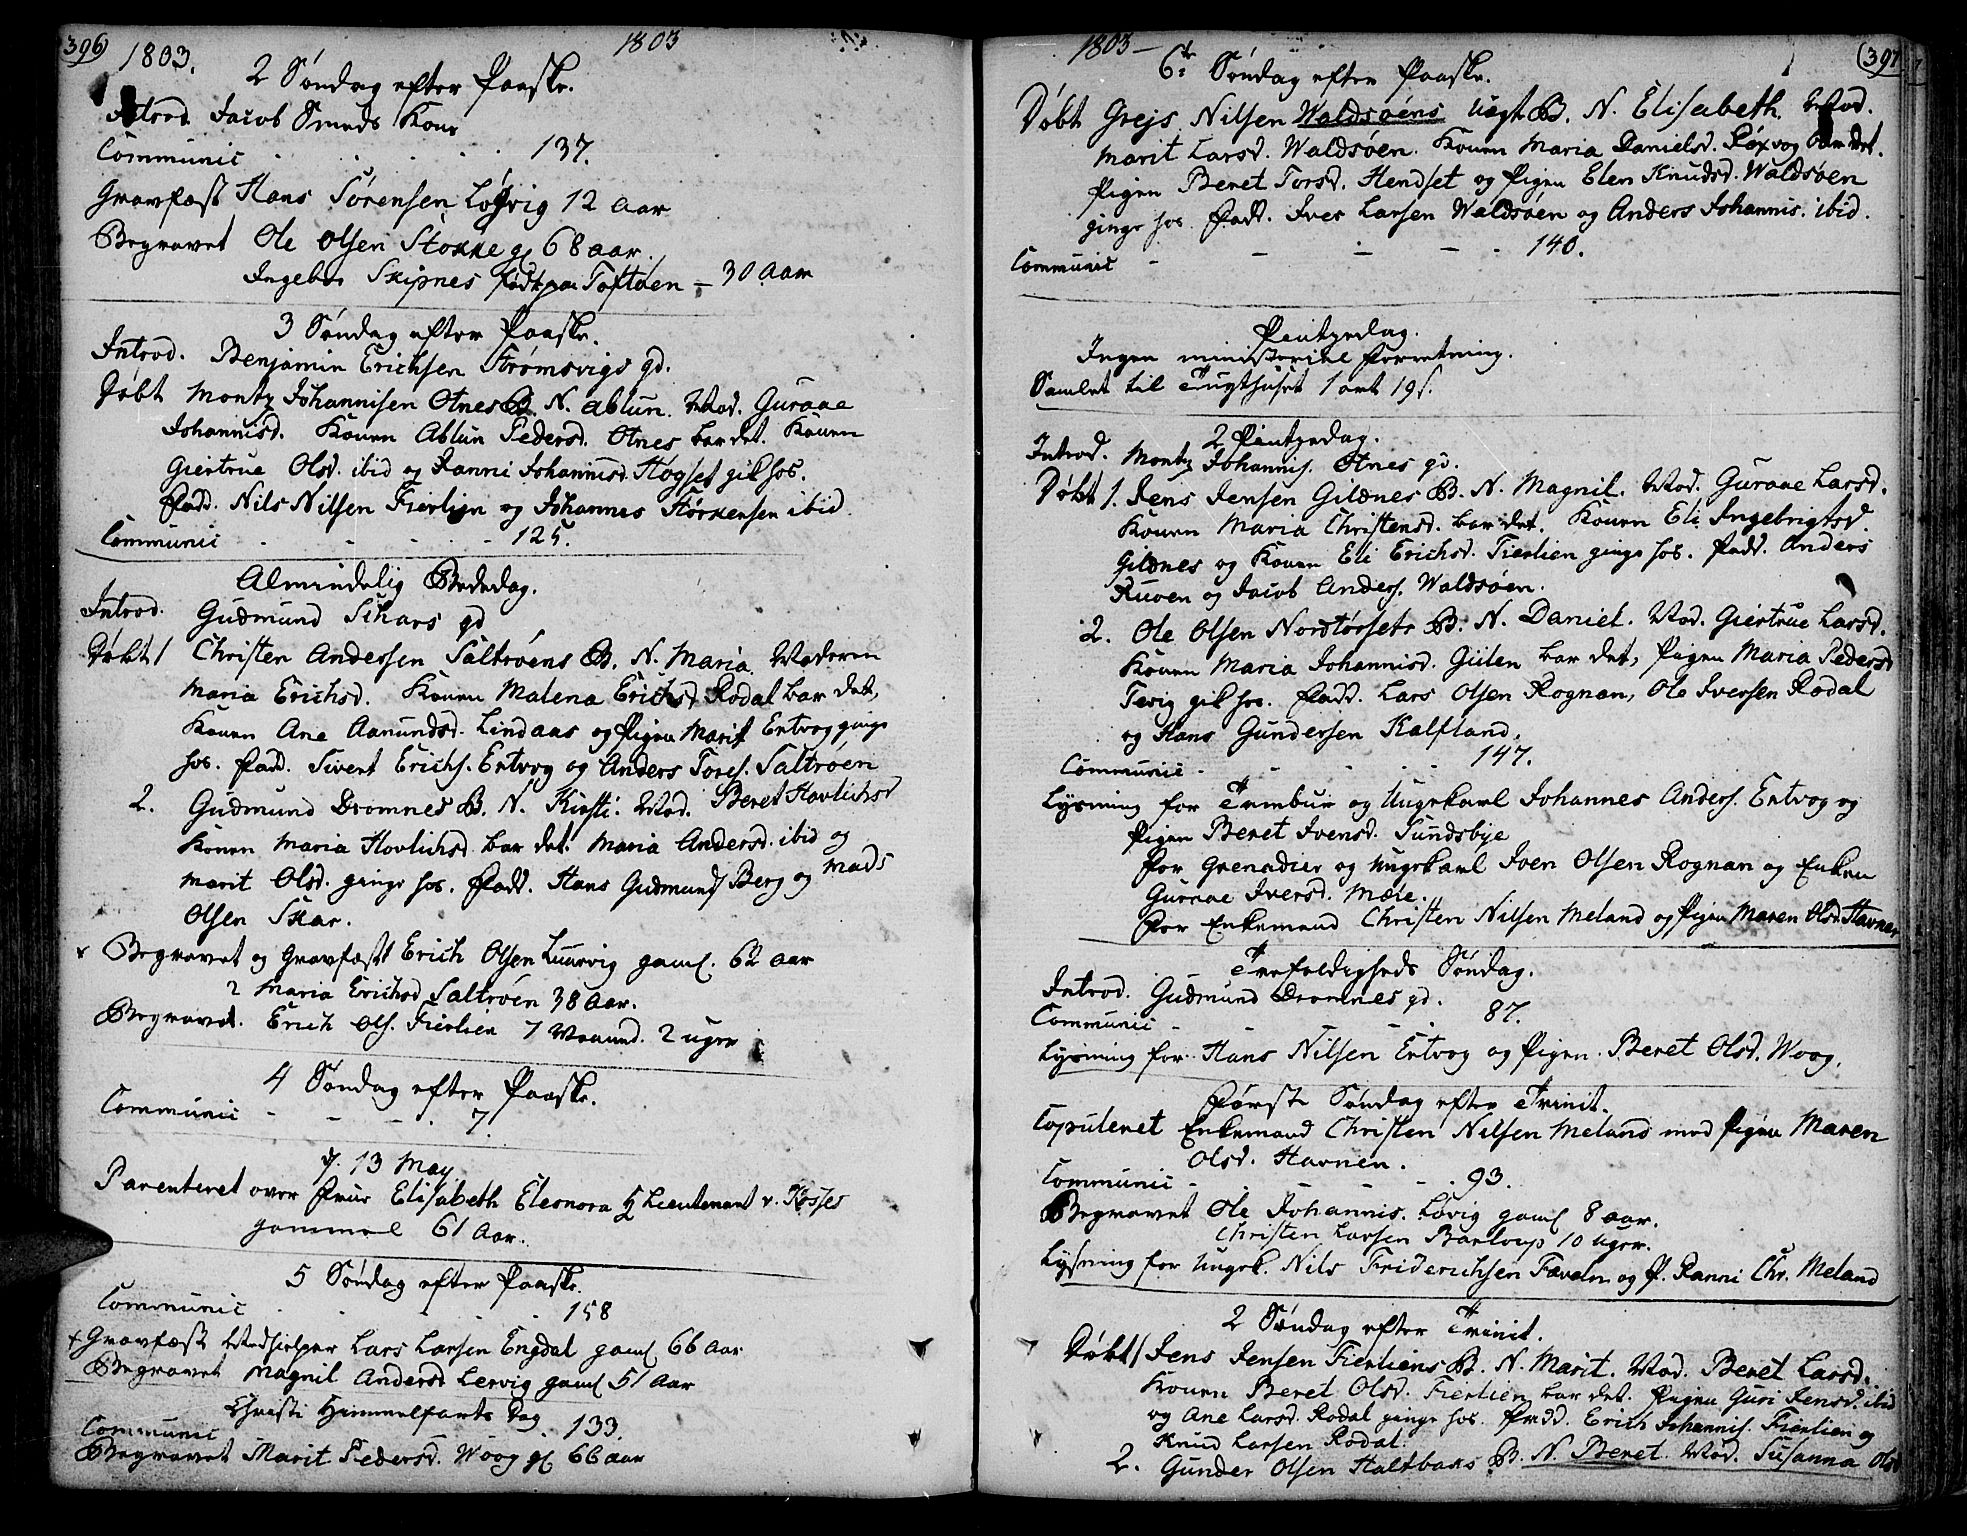 396
1803.
1803
2 Søndag efter Paaske.
Introd. Jacob Smeds Kone
Communic . . . . . 137.
Gravfæst Hans Sørensen Løgvig 12 Aar
Begravet Ole Olsen Stokke gl 68 aar.
Ingebor Skipnes født paa Toftøen – 30 Aar
3 Søndag efter Paaske.
Introd. Benjamin Erichsen Strømsvigs qd.
Døbt Montz Johannisen Otnes B. N. Ablun. Mod. Guraae
Johannisd. Konen Ablun Pedersd. Otnes bar det. Konen
Giertrue Olsd. ibid og Ranni Johannisd. Høgset gik hos.
Fadd. Nils Nilsen Fierlien og Johannes Størkersen ibid.
Communic . . . . . 125.
Almindelig Bededag.
Introd. Gudmund Schars qd
Døbt 1 Christen Andersen Saltrøens B. N. Maria. Moderen
Maria Erichsd. Konen Malena Erichsd Rodal bar det,
Konen Ane Aamundsd. Lindaas og Pigen Marit Entvog ginge
hos. Fad. Sivert Erichs. Entvog og Anders Tores. Saltrøen
2. Gudmund Dromnes B. N. Kirsti. Mod. Beret Hovlichsd
Konen Maria Hovlichsd. bar det. Maria Andersd. ibid og
Marit Olsd. ginge hos. Fadd. Hans Gudmunds Berg og Mads
Olsen Skar.
Begravet og Gravfæst Erich Olsen Luurvig gaml. 62 aar
2 Maria Erichsd Saltrøen 38 Aar.
Begravet. Erich Ols. Fierlien 7 Maaned. 2 uger
4 Søndag efter Paaske.
Communic - - - . 7.
d. 13 May
Parenteret over Frue Elisabeth Eleonora Lieutenant v. Kosses
gammel 61 Aar.
5 Søndag efter Paaske.
Communic . . . . 158
Gravfæst Medhielper Lars Larsen Engdal gaml 66 Aar
Begravet Magnil Andersd Lervig gaml 51 Aar
Christi Himmelfarts Dag
Communic . 133.
Begravet Marit Pedersd. Woog gl. 66 aar
1803 –
397
6te Søndag efter Paaske.
Døbt Grejs Nilsen Waldsøens Uægt. B. N. Elisabeth. Mod.
Marit Larsd. Waldsøen. Konen Maria Danielsd. bar det.
Pigen Beret Torsd. Hendset og Pigen Elen Knudsd. Waldsøen
ginge hos. Fadd. Iver Larsen Waldsøen og Anders Johannis. ibid.
Communic - - - - . 140.
Pintzedag.
Ingen ministeriel Forretning.
Samlet til Tugthuset 1 ort 19 s.
2 Pintzedag.
Introd. Montz Johannis. Otnes qd.
Døbt 1. Jens Jensen Gildnes B. N. Magnil. Mod. Guraae Larsd.
Konen Maria Christensd. bar det. Konen Eli Ingebrigtsd.
Gildnes og Konen Eli Erichsd. Fierlien ginge hos. Fadd. Anders
Ruoen og Jacob Anders. Waldsøen.
2. Ole Olsen Nordtørsets B. N. Daniel. Mod. Giertrue Larsd.
Konen Maria Johannisd. Gulen bar det, Pigen Maria Pedersd
Tevig gik hos. Fadd. Lars Olsen Rognan, Ole Iversen Rodal
og Hans Gundersen Kalfland.
Communic - - - - . 147.
Lysning for Tambur og Ungekarl Johannes Anders. Entvog og
Pigen Beret Ivensd. Sundsbye
For Grenadier og Ungekarl Iven Olsen Rognan og Enken
Guraae Iversd. Mæle.
For Enkemand Christen Nilsen Meland og Pigen Maren Olsd. Havnen
Trefoldigheds Søndag.
Introd. Gudmund Dromnes qd.
Communic - - - . 87.
Lysning for Hans Nilsen Entvog og Pigen Beret Olsd. Woog.
Første Søndag efter Trinit.
Copuleret Enkemand Christen Nilsen Meland med Pigen Maren
Olsd. Havnen.
Communic - - - - . 93.
Begravet Ole Johannis. Løvig gaml 8 aar.
Christen Larsen Barloup 10 uger.
Lysning for Ungk. Nils Friderichsen Tævoln og P. Ranni Chr. Meland
2 Søndag efter Trinit.
Døbt 1 Jens Jensen Fierliens B. N. Marit. Mod. Beret Larsd.
Konen Beret Olsd. Fierlien bar det. Pigen Guri Jensd. ibid
og Ane Larsd. Rodal ginge hos. Fadd. Erich Johannis. Fierlien og
Knud Larsen Rodal.
2. Gunder Olsen Haltbaks B. N. Beret. Mod. Susanna Olsd